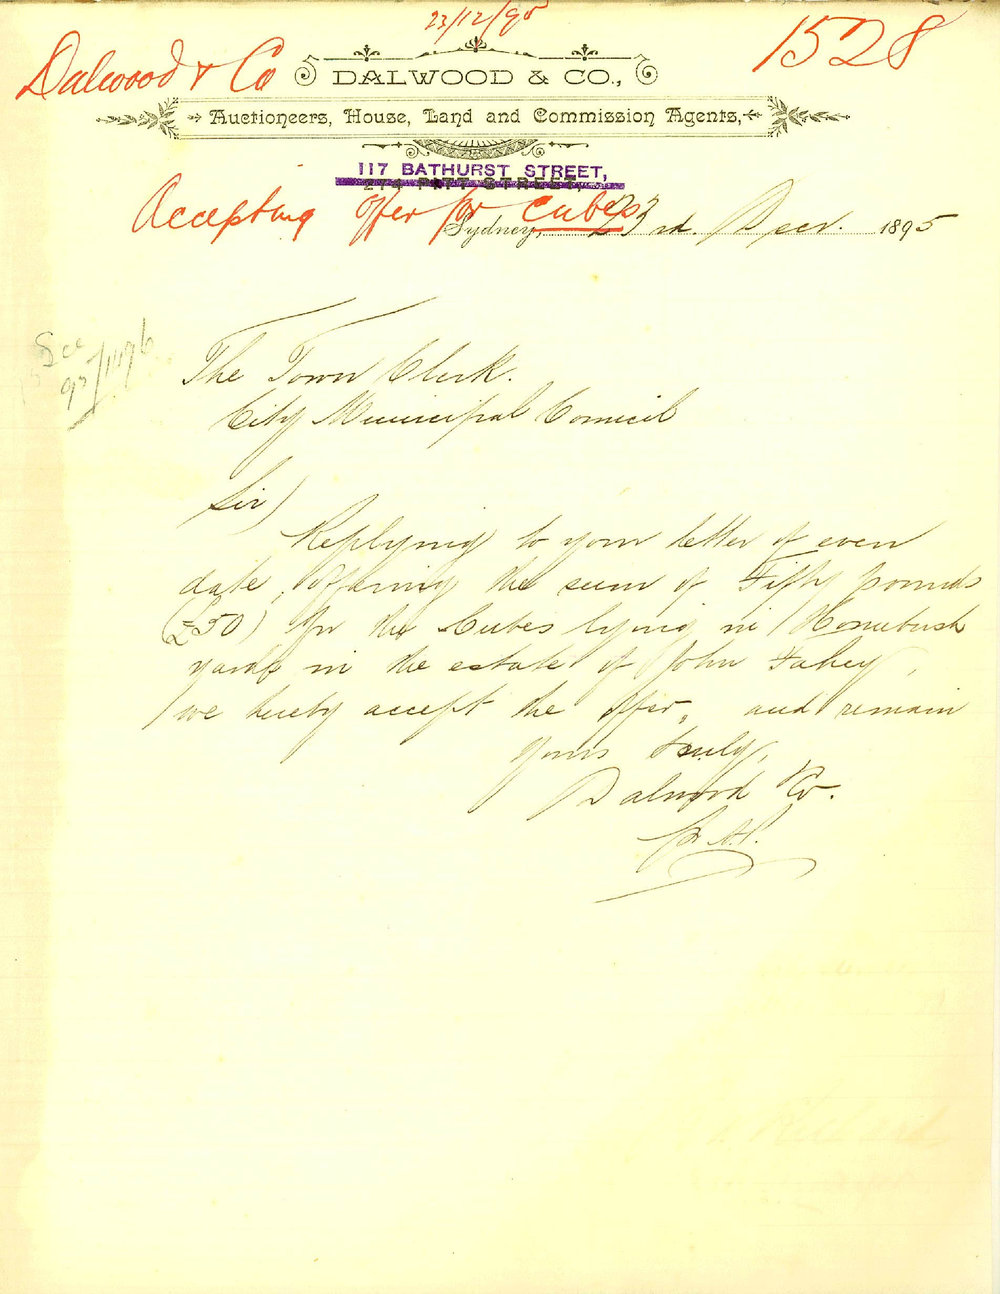 23/12/95
Dalwood & Co
1528
DALWOOD & CO.,
Auctioneers, House, Land and Commission Agents,
117 BATHURST STREET,
PITT STREET,
Accepting offer for Cubes
Sydney, 23rd. Decr. 1895
See
95/1476
The Town Clerk.
City Municipal Council
Sir)
Replying to your letter of even
date, offering the sum of Fifty pounds
(£50) for the Cubes lying in Homebush
yards in the estate of John Fahey,
we hereby accept the offer, and remain
Yours truly,
Dalwood & Co.